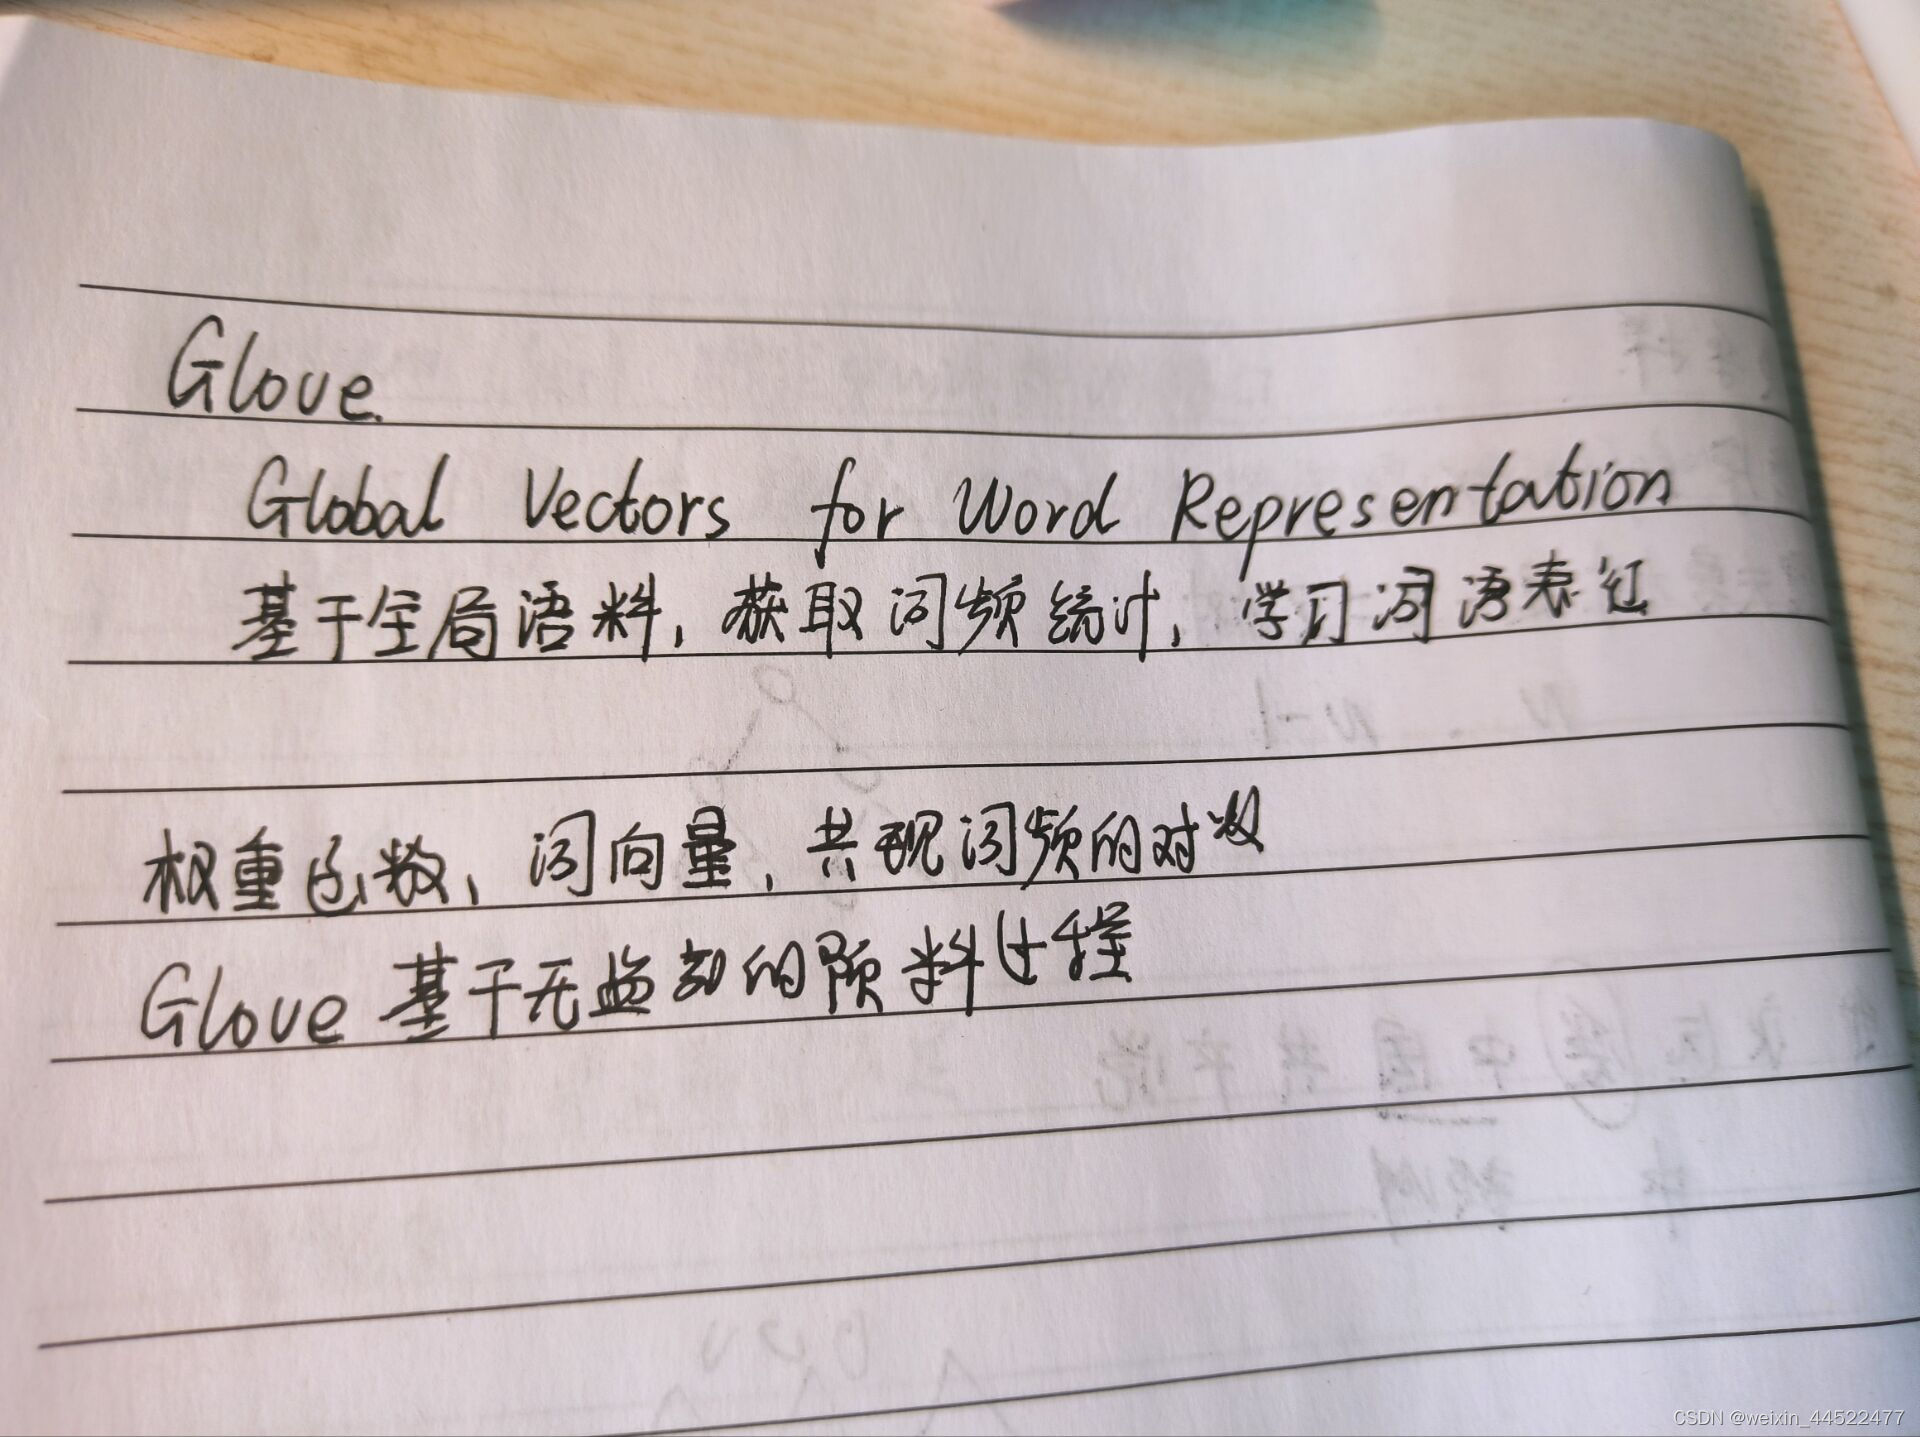 Glove.
Global Vectors for Word Representation
基于全局语料，获取词频统计，学习词语表征
权重函数、词向量，共现词频的对数
Glove 基于无监督的预料过程
CSDN @weixin_44522477